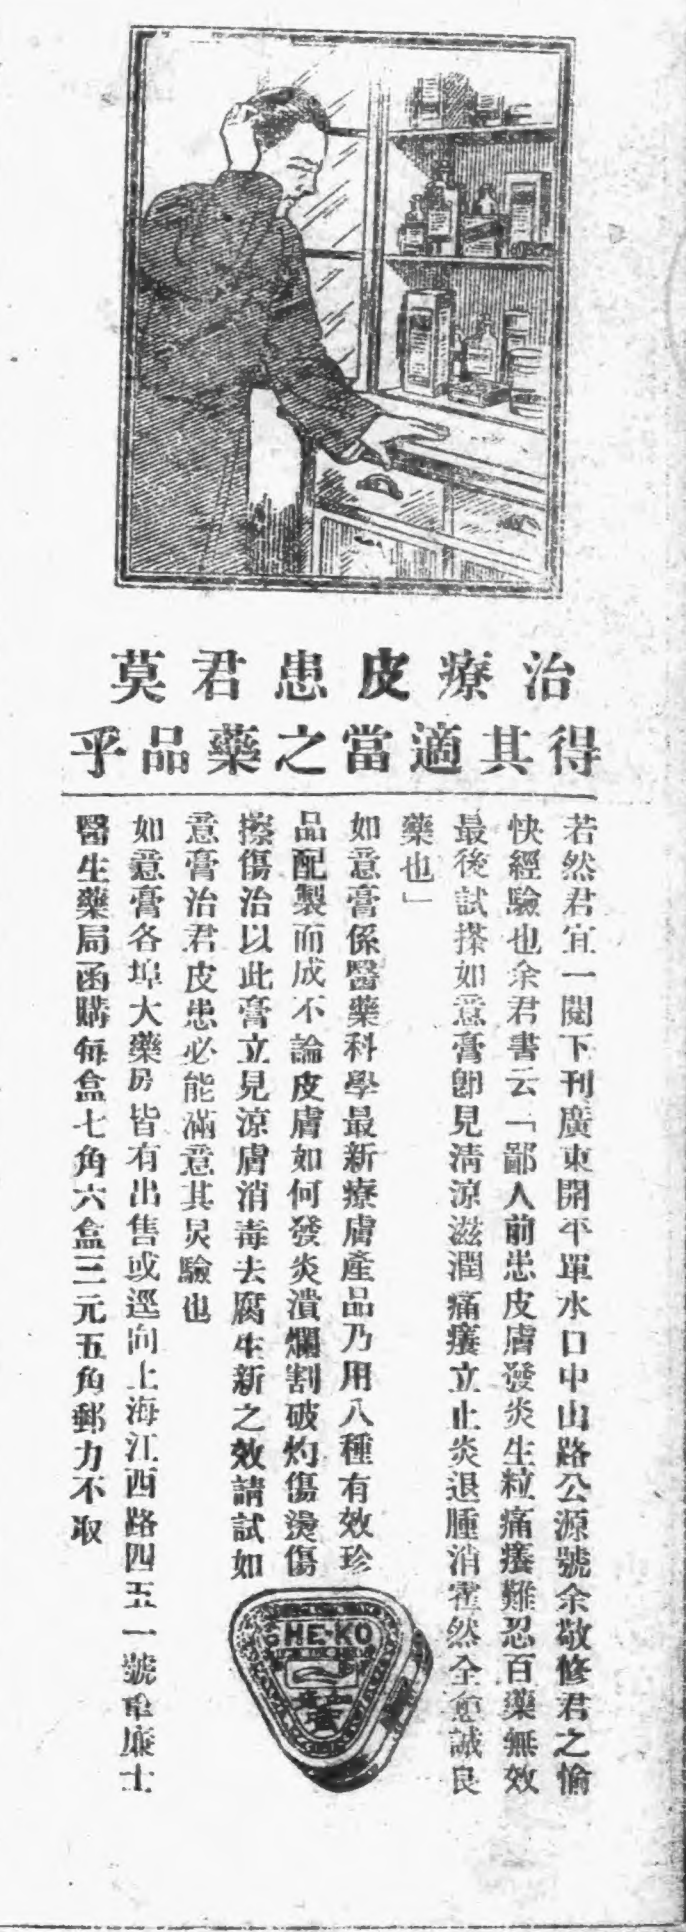 治療皮患君莫
得其適當之藥品乎
若然君宜一閱下刊廣東開平單水口中山路公源號余敬修君之愉
快經驗也余君書云「鄙人前患皮膚發炎生粒痛癢難忍百藥無效
最後試搽如意膏卽見清涼滋潤痛癢立止炎退腫消霍然全愈誠良
藥也」
如意膏係醫藥科學最新療膚產品乃用八種有效珍
品配製而成不論皮膚如何發炎潰爛割破灼傷燙傷
擦傷治以此膏立見涼膚消毒去腐生新之效請試如
意膏治君皮患必能滿意其灵驗也
如意膏各埠大藥房皆有出售或逕向上海江西路四五一號韋廉士
醫生藥局函購每盒七角六盒三元五角郵力不取
HE-KO